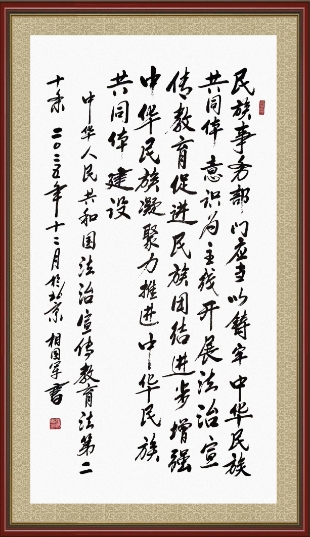 民族事务部门应当以铸牢中华民族
共同体意识为主线开展法治宣
传教育促进民族团结进步增强
中华民族凝聚力推进中华民族
共同体建设
中华人民共和国法治宣传教育法第二
十条 二〇二五年十二月於北京 相国军书